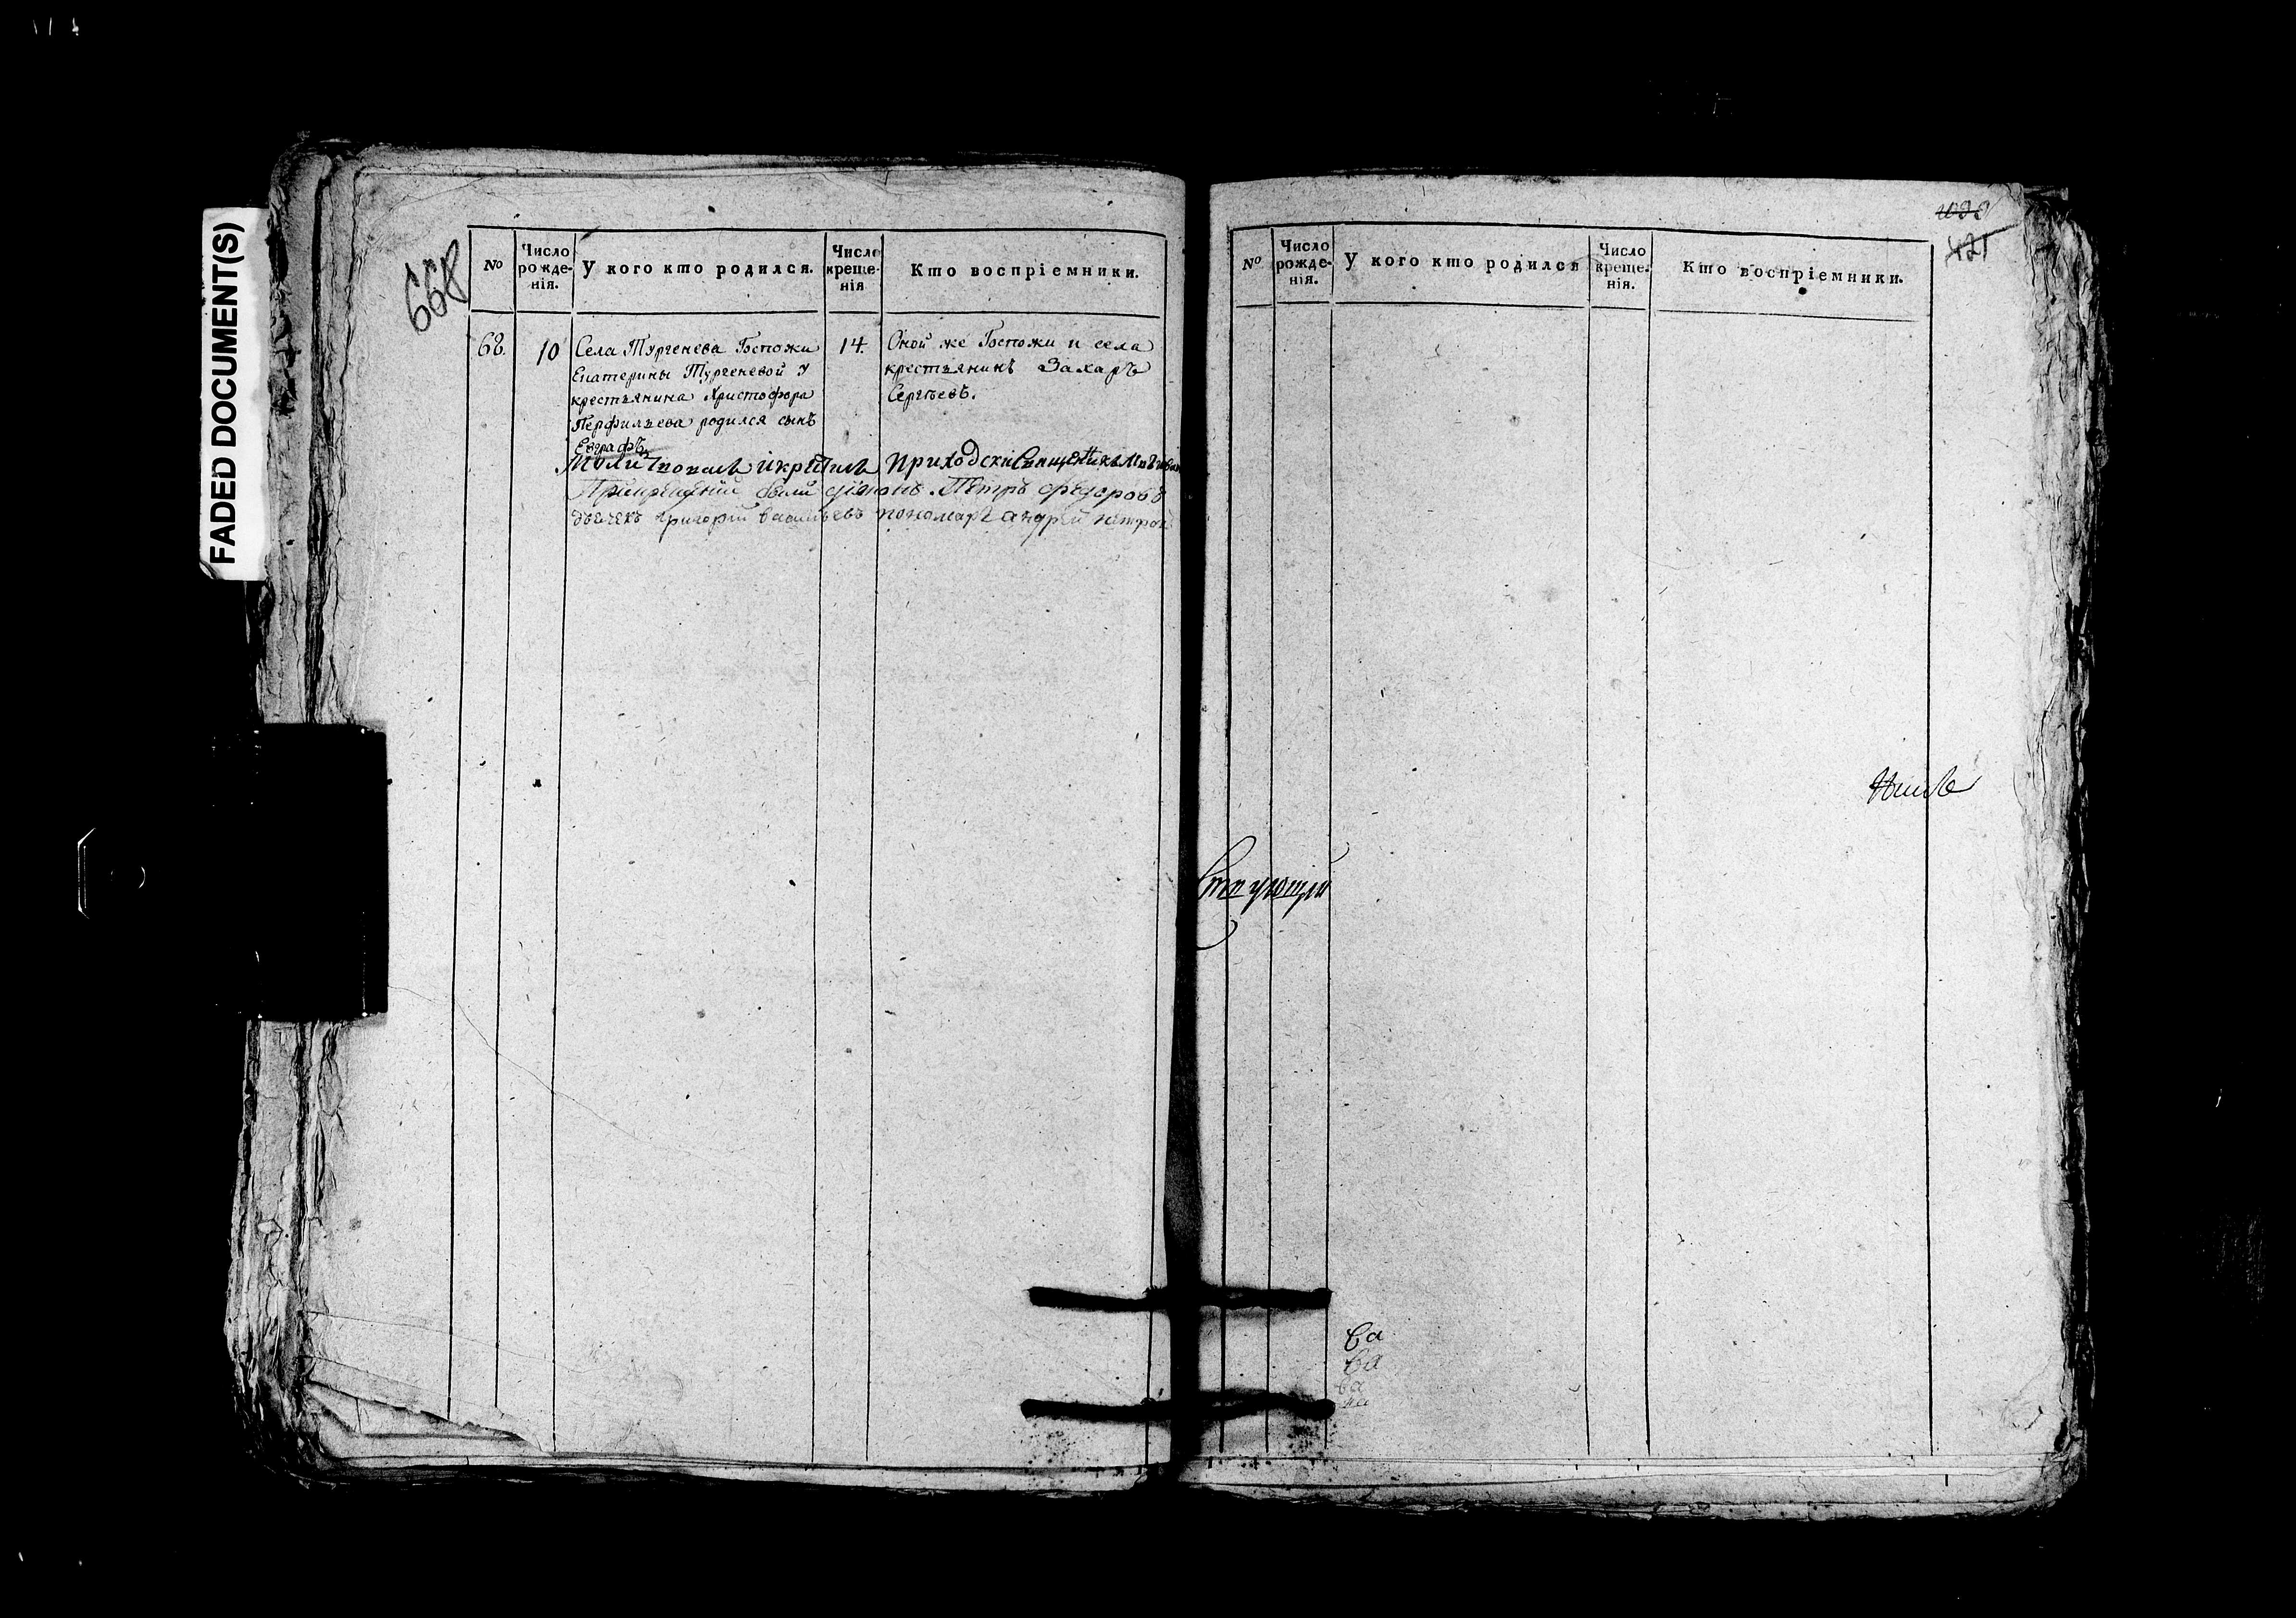 FADED DOCUMENT(S)
668
No
Число рожде-нія.
У кого кто родился.
Число креще-нія
Кто воспріемники.
68.
10
Села Тургенева Госпожи
Екатерины Тургеневой у
крестьянина Христофора
Перфильева родился сынъ
Евграфъ
14.
Оной же Госпожи и села
крестьянинъ Захаръ
Сергѣевъ.
Молитвовалъ и крѣстилъ Приходскі Священникъ
При крещеніи были діаконъ Петръ Федоровъ
дьячекъ григорій васильевъ пономарь андрей петров
421
No
Число рожде-нія.
У кого кто родился
Число креще-нія.
Кто воспріемники.
ствующій
ва
ва
ва